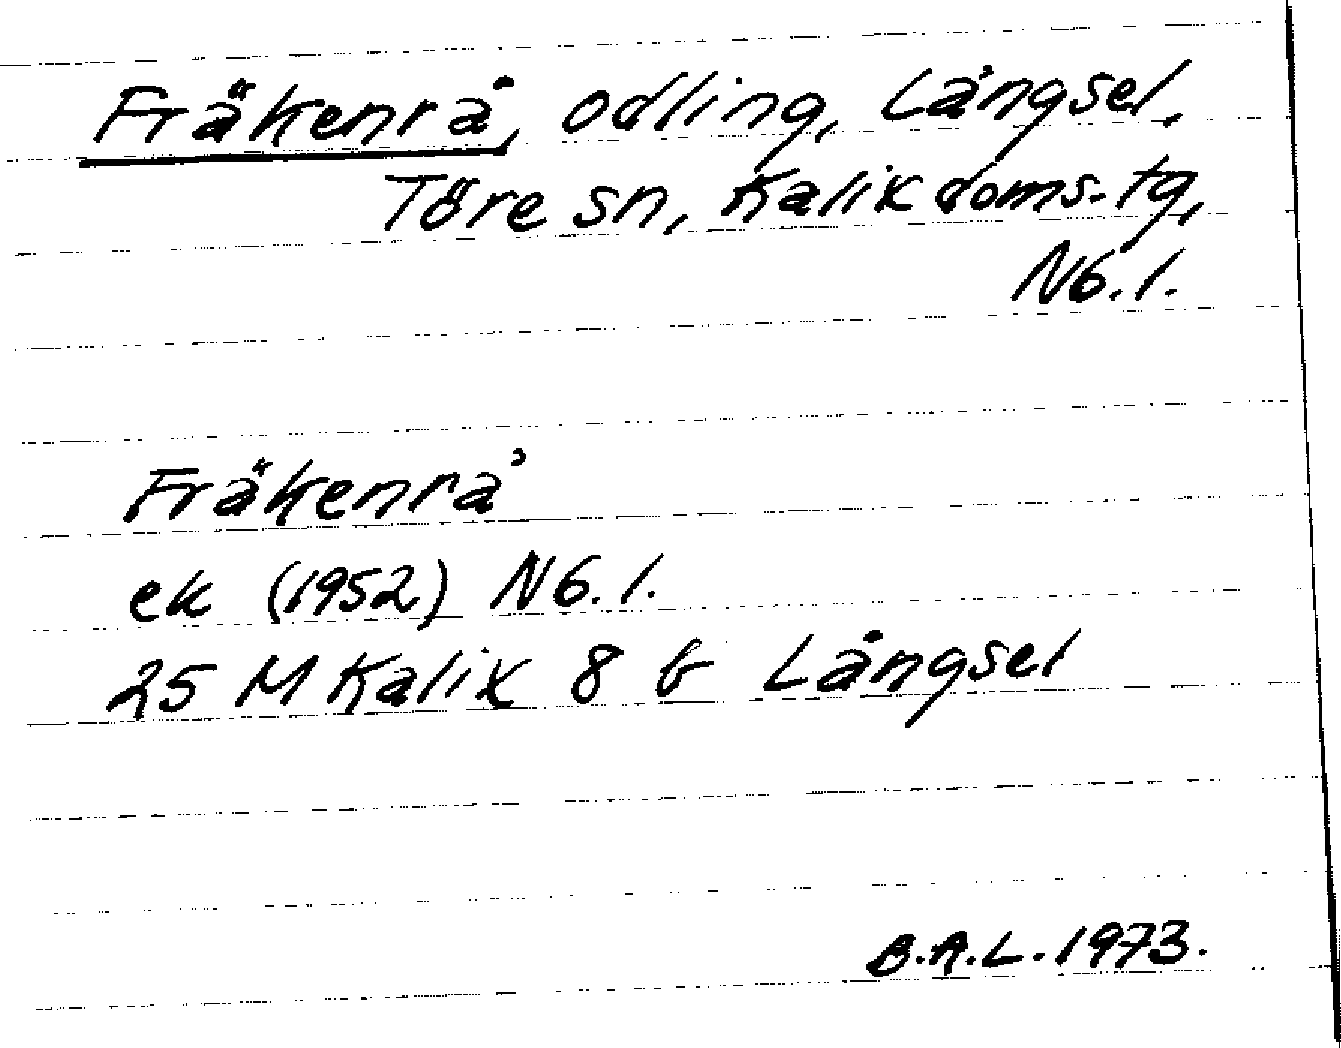 Fräkenrå, odling, Långsel,
Töre sn, Kalix doms. tg,
Nb. l.
Fräkenrå
ek (1952) Nb. l.
25 M Kalix 8 b Långsel
B.A.L. 1973.